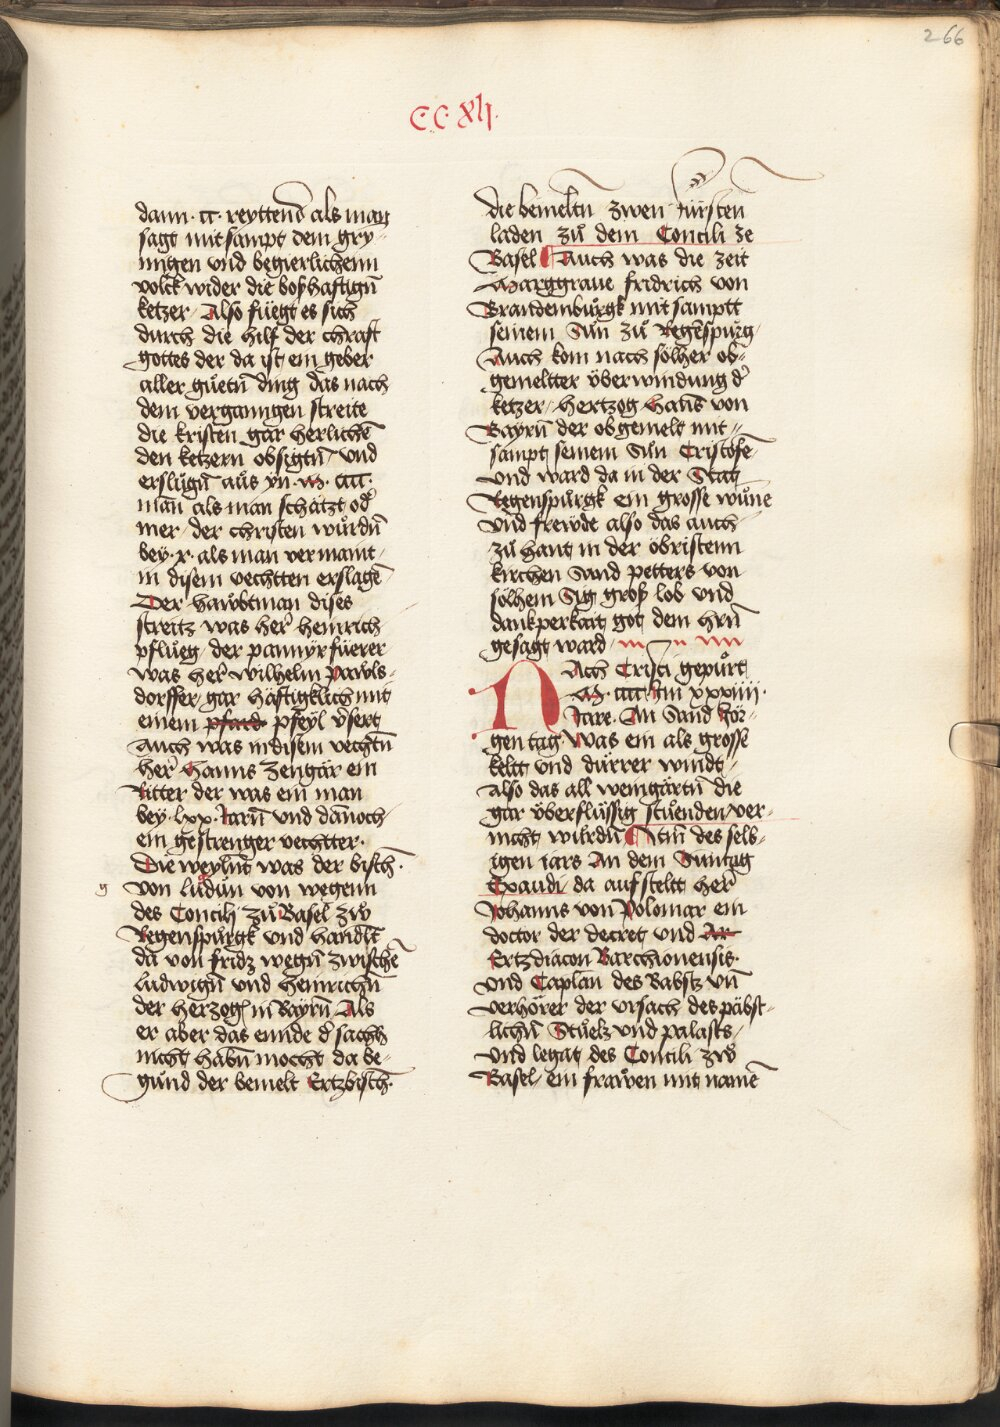 266
CCxlj.
dann · cc · reyttend als man
sagt mitsampt dem gry⸗
nnigen vnd begierlichenn
volck wider die boßhafftigñ
ketzer / Also füegt es sich
durch die hilf der chrafft
gottes der da ist ein geber
aller güetñ ding das nach
dem vergangen streite
die kristen gar herlichē
den ketzern obsigtñ / vnd
erslůgñ aůs yn · M · cccc ·
man als man schätzt od͛
mer / der christen wůrdñ
bey · x · als man vermaint /
in disem vechtten erslagē
Der hawbtman dises
streitz was her͛ heinrich
pflůeg / der pannyrfüerer
was her͛ wilhelm pawls⸗
dorffer / gar häftigklich mit
einem pfard pfeyl v͛sert
Auch was in disem vechtñ
her͛ Hanns Zengär ein
Ritter der was ein man
bey · lxx · Jarñ vnd dānoch
ein gestrenger vechtter ·
Die weylnt was der bisch ·
g von ludůn von wegenn
des Concilj zů Basel zẘ
Regenspůrgk vnd handlt
da von fridz wegñ zwischē
ludwigñ vnd heinrichñ
der herzog in Bayrñ / Als
er aber das ennde d͛ sachh
nicht habñ mocht da be⸗
gund der bemelt Ertzbisch ·
die bemeltñ zwen fürsten
laden zů dem Concili ze
Basel ¶ Auch was die zeit
Marggraue fridrich von
Brandembůrgk mit samptt
seinem Sůn zů Regēspůrg /
Auch kom nach sölher ob⸗
gemeltter überwindung d͛
ketzer / hertzog Hañs von
Bayrñ der obgemelt mit⸗
sampt seinem Sůn Cristofe⸗
vnd ward da in der Stat
Regenspůrgk ein grosse wůne
vnd frewde also das auch
zů hant in der öbristenn
kirchen Sand petters von
sölhem Sig groß lob vnd
dankperkait got dem hrñ
gesagt ward /
NAch Cristi gepůrt
M · cccc · Im xxxiiij ·
Jare · An Sand Jör⸗
gen tag · Was ein als grosse
keltt vnd dürrer windt /
Also das all weingärtñ die
gar überflüssig stůenden / ver⸗
nicht wůrdñ ¶ Itm̄ des selb⸗
igen iars An dem Suntag
Exaudi da aufsteltt her͛
Johanns von Polomar ein
doctor der decret vnd Ar
Ertzdiacon Barchionensis ·
vnd Caplan des Babstz vñ
verhörer der vrsach des päbst⸗
lichñ Stůelz vnd palasts /
vnd legat des Concili zẘ
Basel / ein frawen mit namē